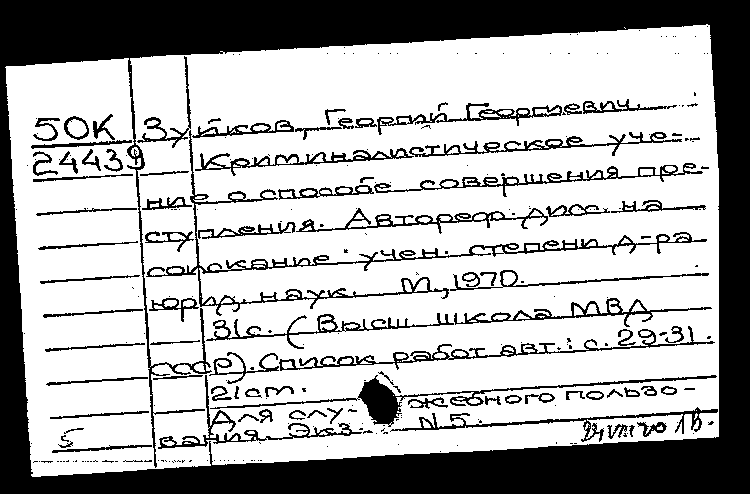 50К Зуйков, Георгий Георгиевич.
24439 Криминалистическое уче-
ние о способе совершения пре-
ступления. Автореф. дисс. на
соискание учен. степени д-ра
юрид. наук. М., 1970.
31с. (Высш. школа МВД
СССР). Список работ авт.: с. 29-31.
21ст.
Для слу- жебного пользо-
5 вания. Экз. N 5.
24 VIII 70 1в.